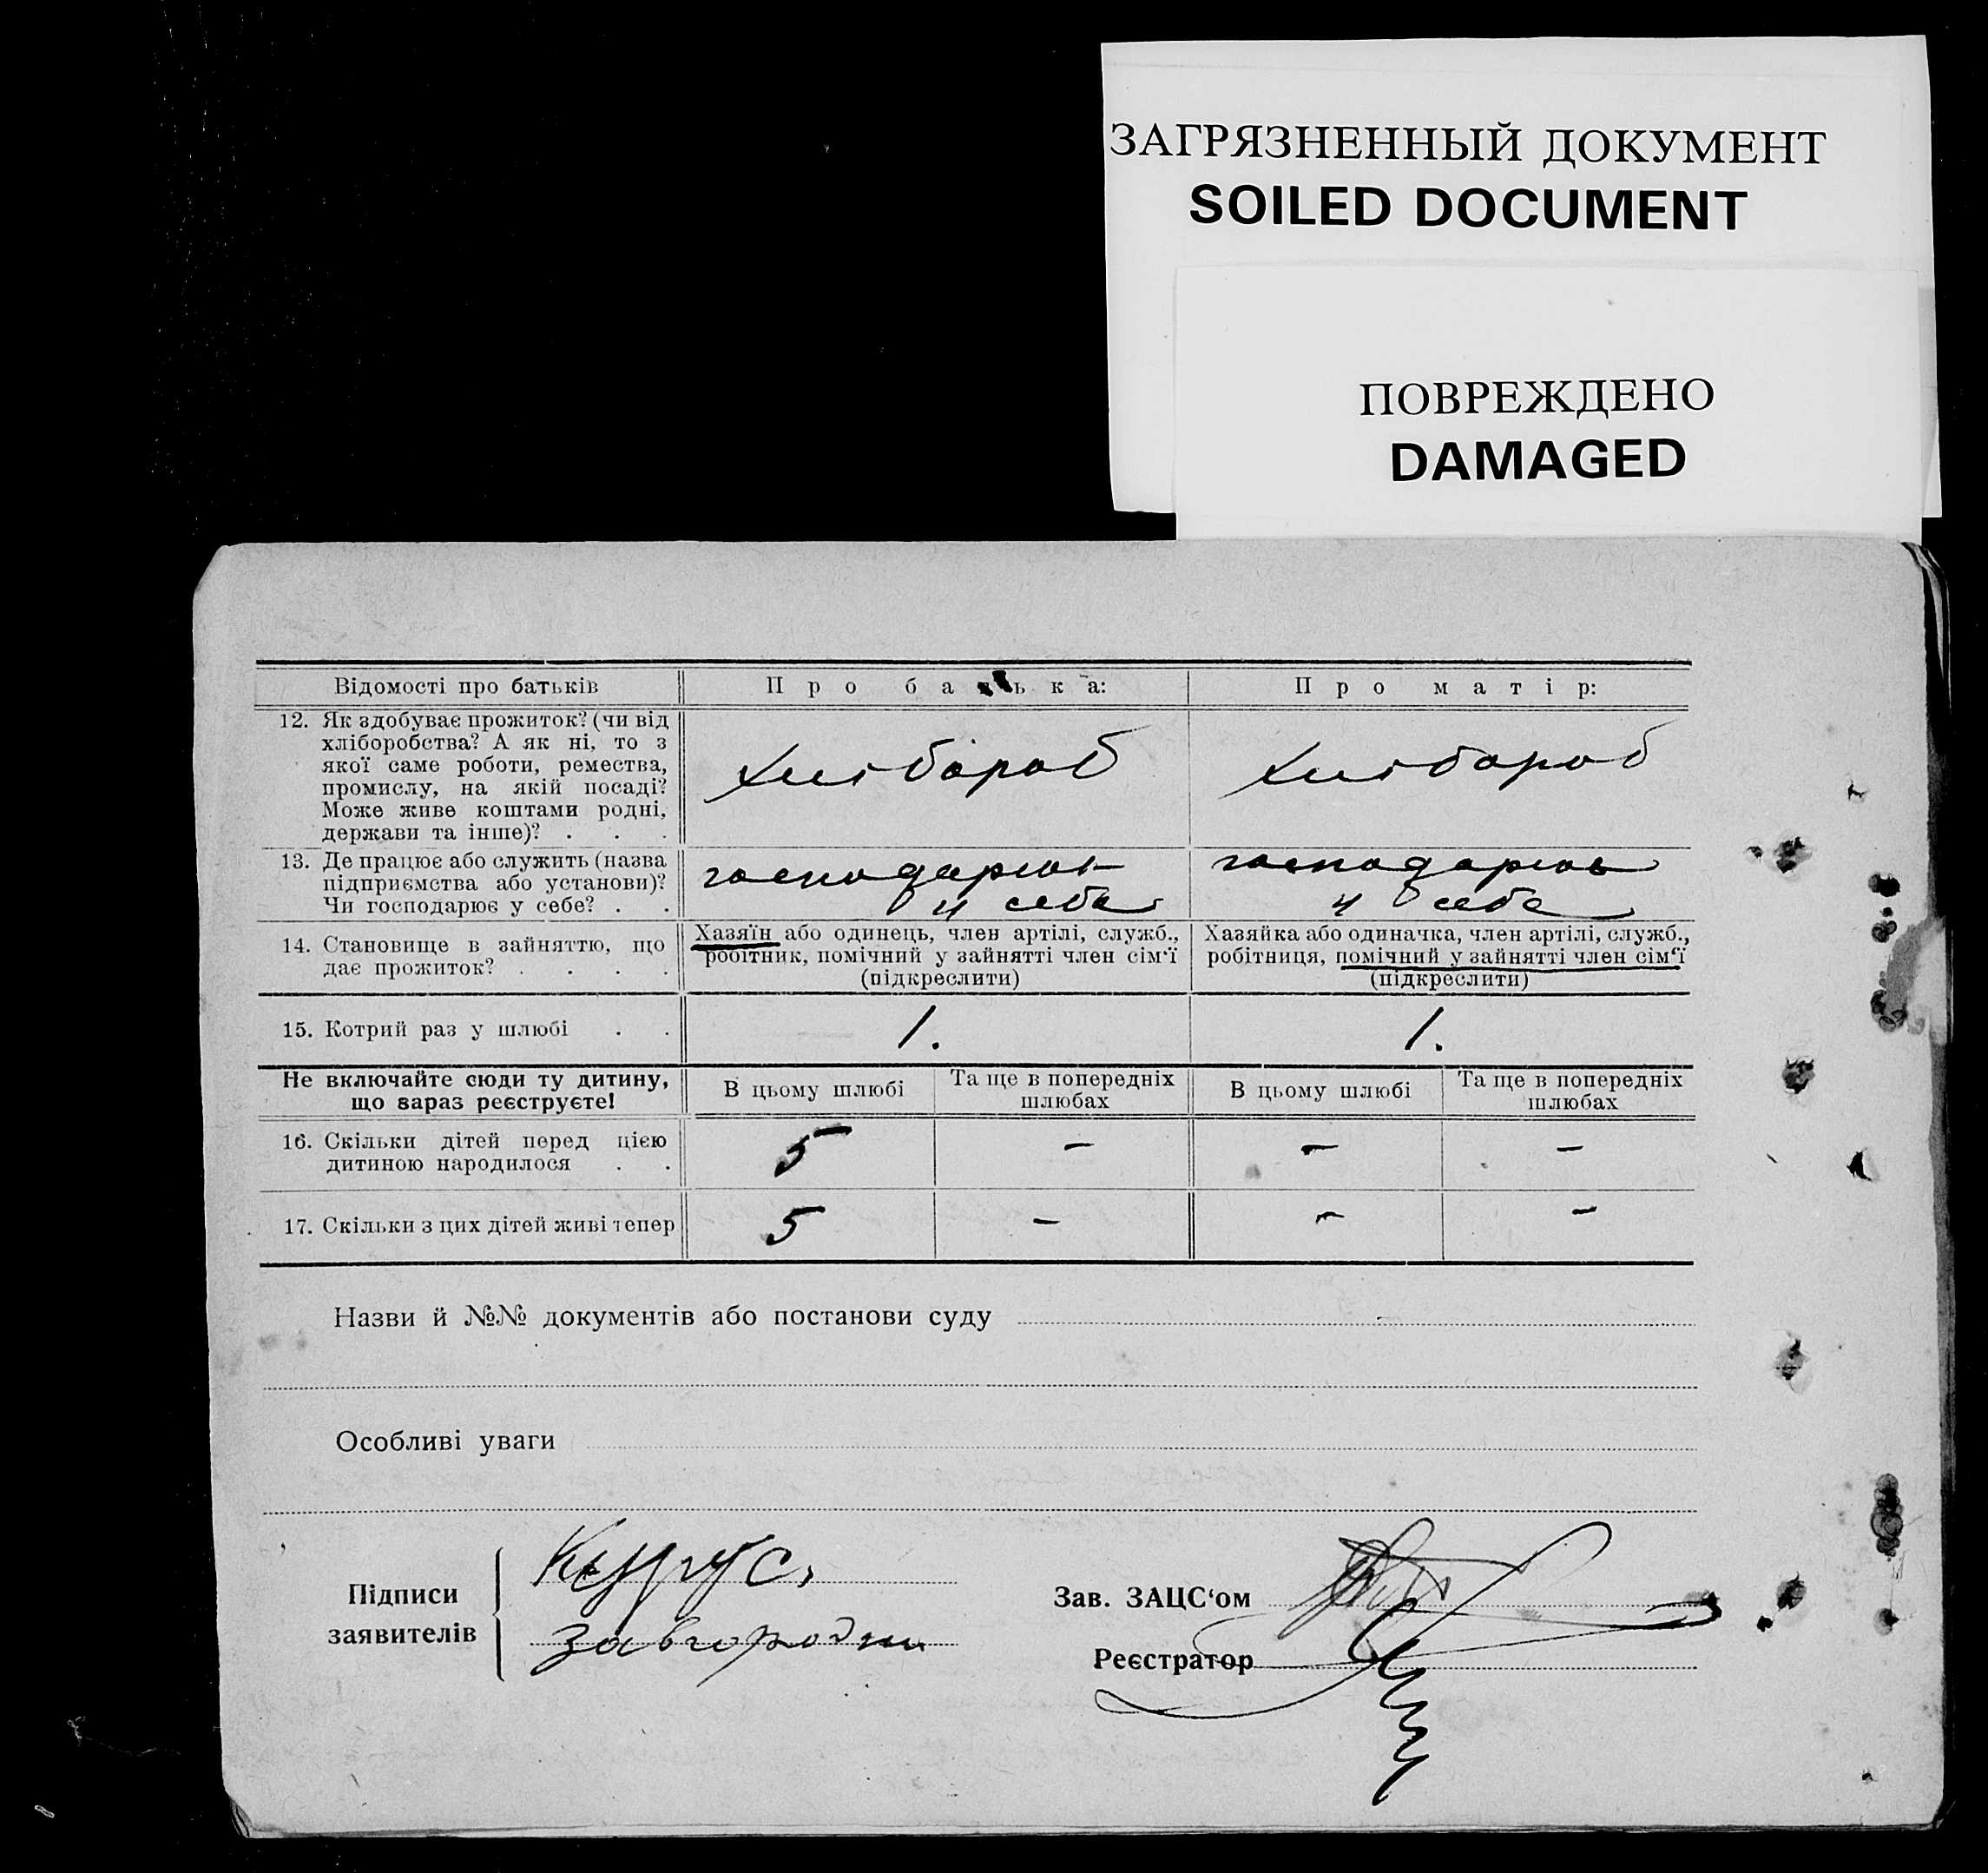 ЗАГРЯЗНЕННЫЙ ДОКУМЕНТ
SOILED DOCUMENT
ПОВРЕЖДЕНО
DAMAGED
Відомості про батьків
Про батька:
Про матір:
12. Як здобуває прожиток? (чи від
хліборобства? А як ні, то з
якої саме роботи, ремества,
промислу, на якій посаді?
Може живе коштами родні,
держави та інше)? . . .
Хлібороб
Хлібороб
13. Де працює або служить (назва
підприємства або установи)?
Чи господарює у себе? . .
господарює
у себе
господарює
у себе
14. Становище в зайняттю, що
дає прожиток? . . . .
Хазяїн або одинець, член артілі, служб.,
робітник, помічний у зайнятті член сім'ї
(підкреслити)
Хазяйка або одиначка, член артілі, служб.,
робітниця, помічний у зайнятті член сім'ї
(підкреслити)
15. Котрий раз у шлюбі . .
1.
1.
Не включайте сюди ту дитину,
що зараз реєструєте!
В цьому шлюбі
Та ще в попередніх
шлюбах
В цьому шлюбі
Та ще в попередніх
шлюбах
16. Скільки дітей перед цією
дитиною народилося . .
5
–
–
–
17. Скільки з цих дітей живі тепер
5
–
–
–
Назви й №№ документів або постанови суду
Особливі уваги
Підписи
заявителів
Завгородн
Зав. ЗАЦС'ом
Реєстратор